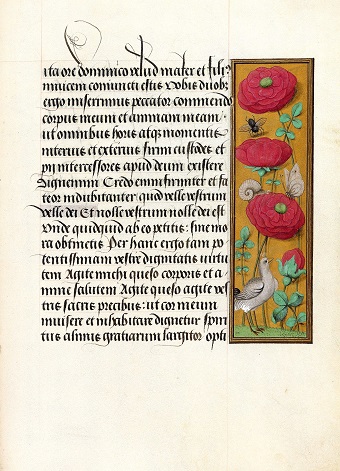 ita ore dominico velud mater et filiꝰ
invicem coniuncti estis Vobis duobꝰ
ergo miserrimus peccator commendo
corpus meum et animam meam
ut omnibus horis atqꝫ momentis
interius et exterius firmi custodes et
pii intercessores apud deum existere
Dignemini Credo enim firmiter et fa
teor indubitanter quod velle vestrum
velle dei Et nolle vestrum nolle dei est
Unde quidquid ab eo petitis sine mo
ra obtinetis Per hanc ergo tam po
tentissimam vestre dignitatis virtu
tem Agite michi queso corporis et a
nime salutem Agite queso agite ves
tris sacris precibus: ut cor meum
invisere et inhabitare dignetur spiri
tus almus gratiarum largitor opti